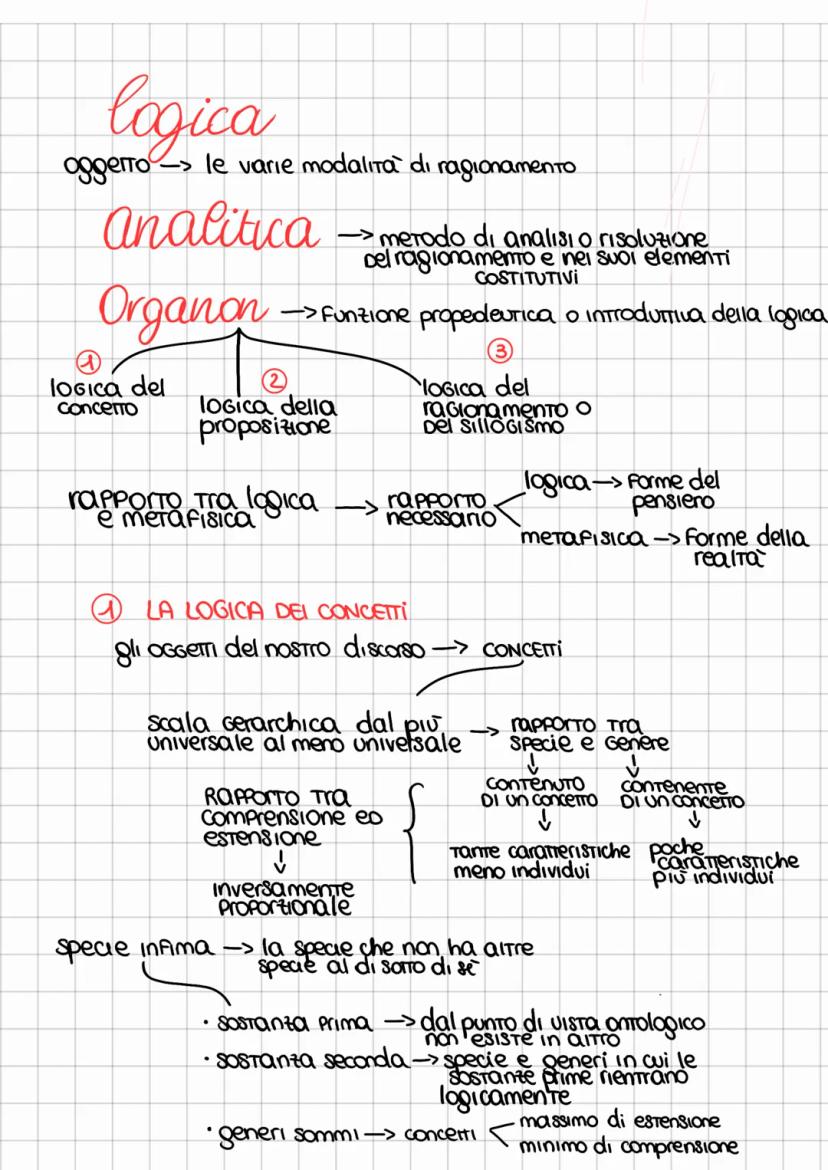 logica
oggetto → le varie modalità di ragionamento
Analitica → metodo di analisi o risoluzione
del ragionamento e nei suoi elementi
costitutivi
Organon → Funzione propedeutica o introduttiva della logica
1
logica del
concetto
2
logica della
proposizione
3
logica del
ragionamento o
del sillogismo
rapporto tra logica
e metafisica → rapporto
necessario
logica → forme del
pensiero
metafisica → forme della
realtà
1 LA LOGICA DEI CONCETTI
gli oggetti del nostro discorso → CONCETTI
scala gerarchica dal più
universale al meno universale → rapporto tra
specie e genere
↓ ↓
contenuto
di un concetto
↓
tante caratteristiche
meno individui
contenente
di un concetto
↓
poche
caratteristiche
più individui
Rapporto tra
comprensione ed
estensione
↓
inversamente
proporzionale
specie infima → la specie che non ha altre
specie al di sotto di sè
· sostanza prima → dal punto di vista ontologico
non esiste in altro
· sostanza seconda → specie e generi in cui le
sostanze prime rientrano
logicamente
· generi sommi → concetti
massimo di estensione
minimo di comprensione